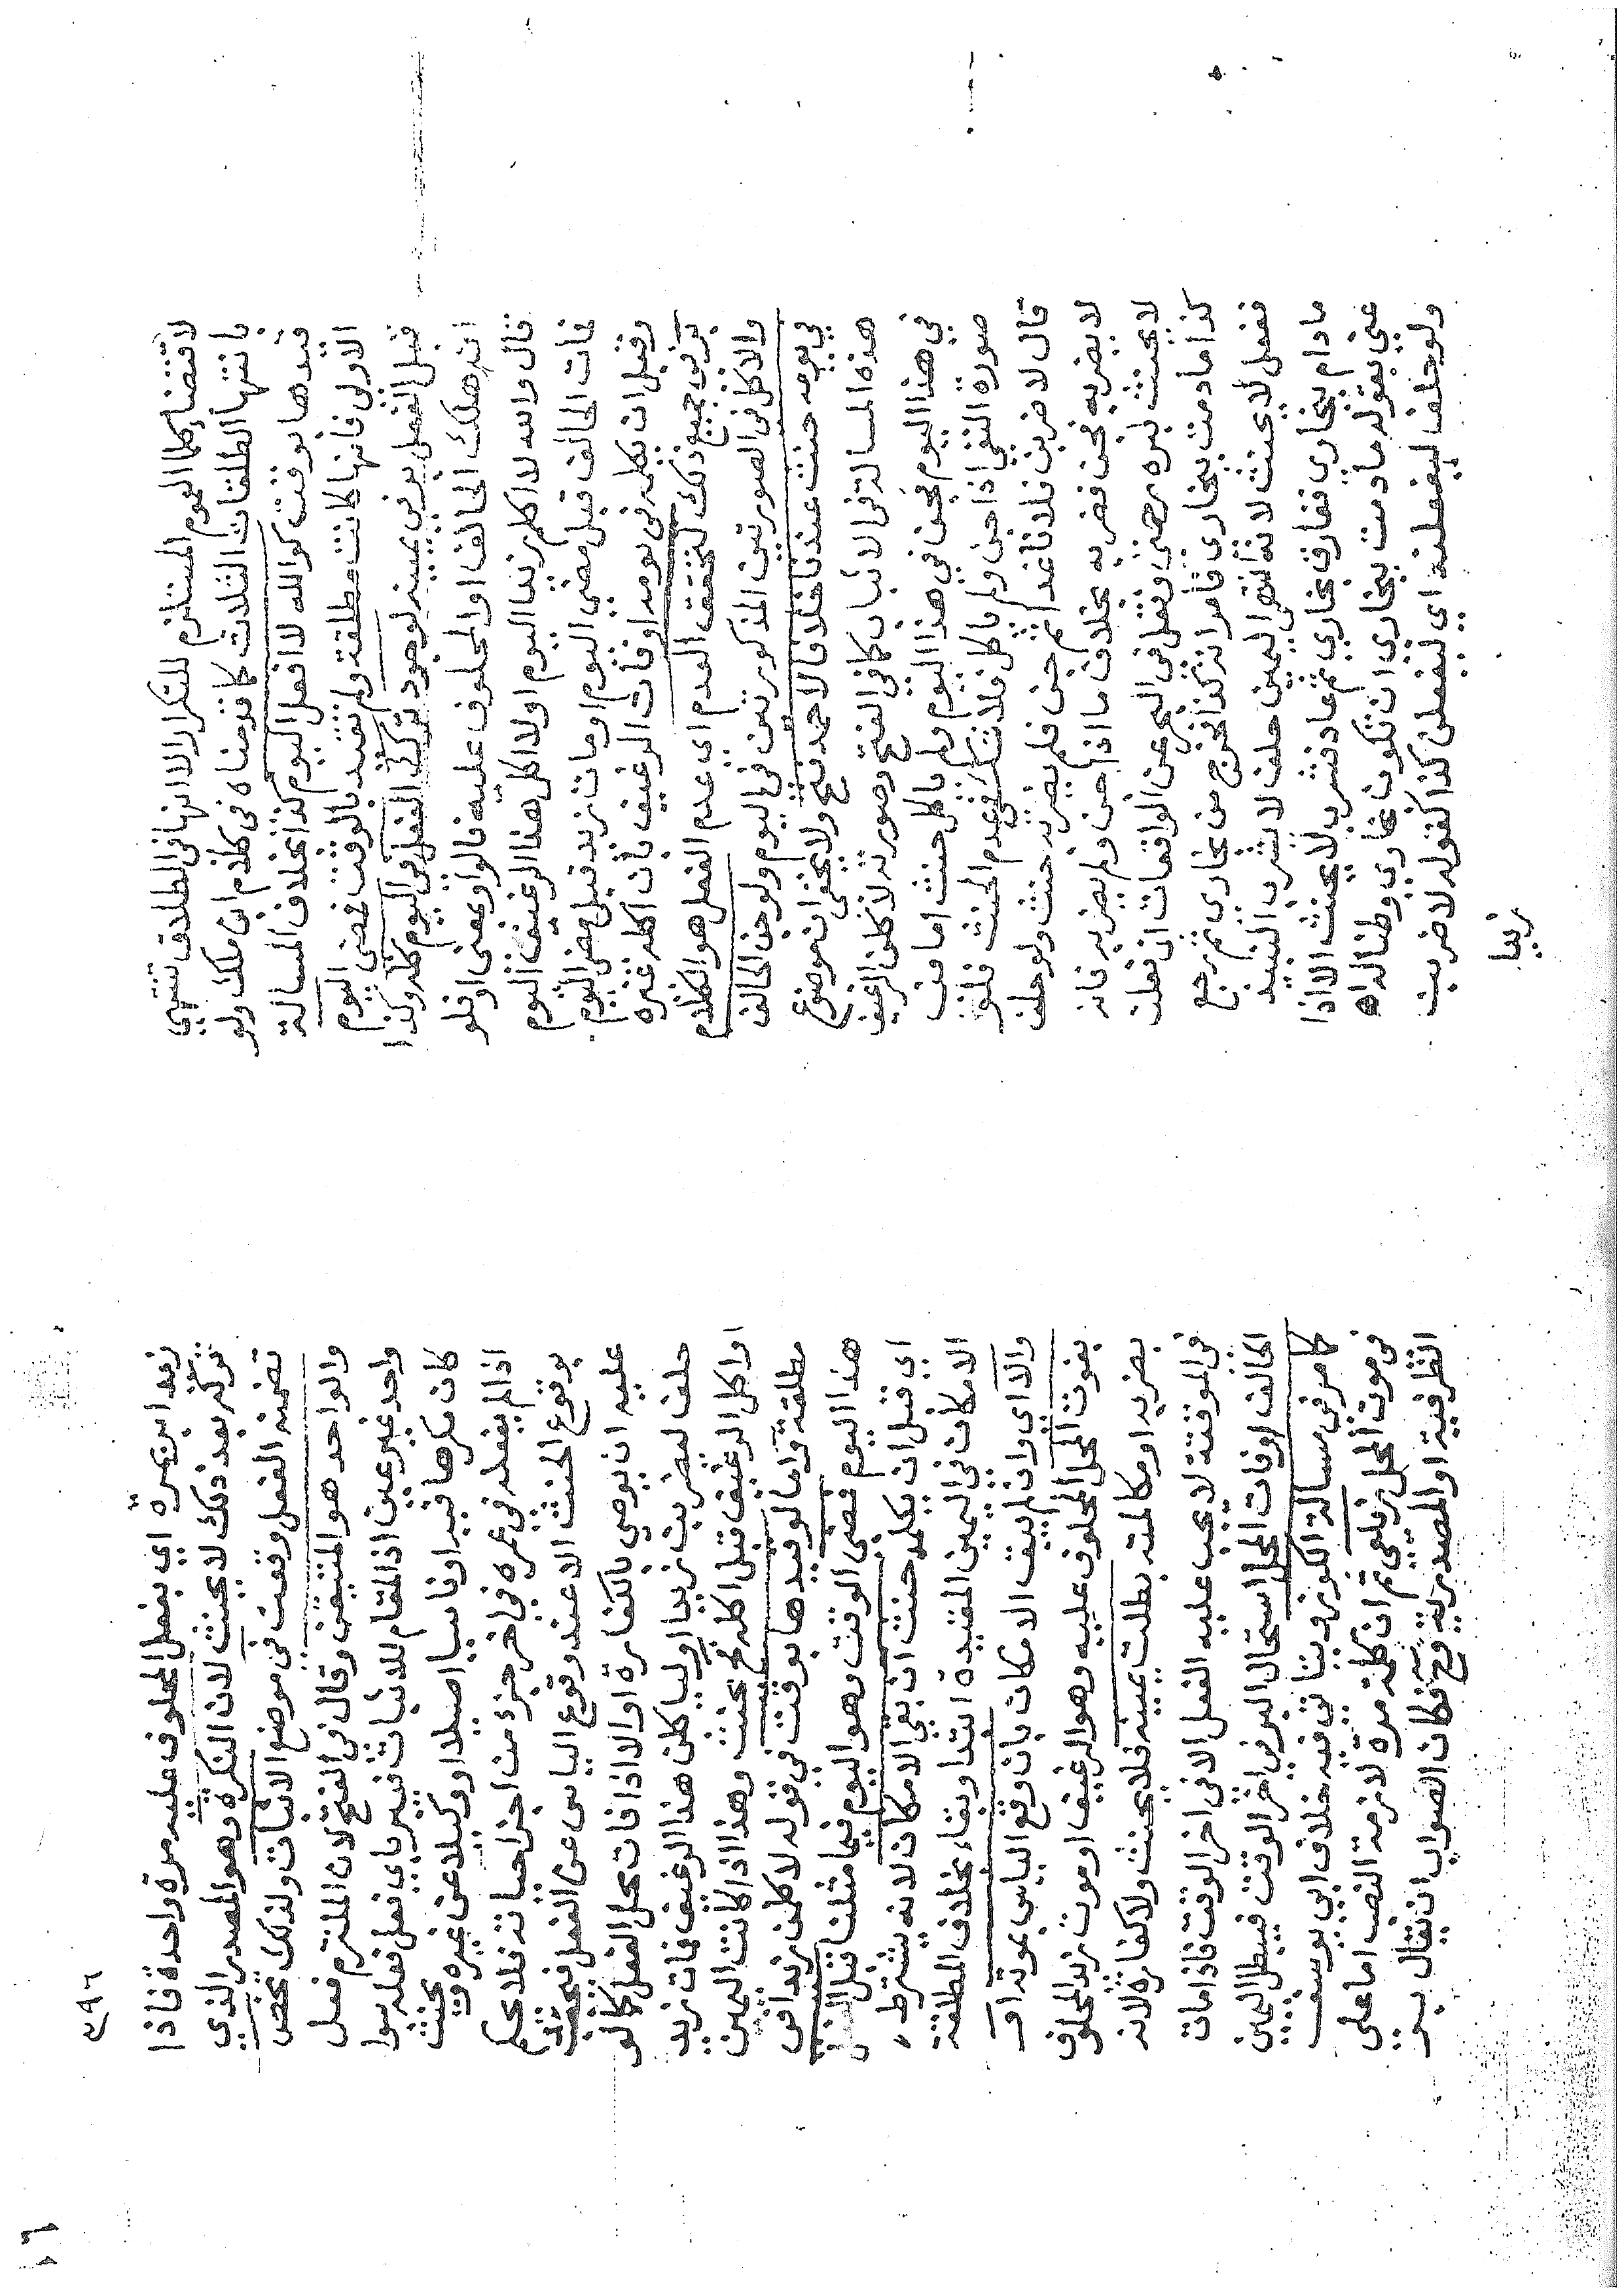 لاقتضاء كلما العموم المستلزم للتكرار الا انها في الطلاق تنتهي
بانتهاء الطلقات الثلاث كما قدمناه في كلام ابن ملك ولو
قيدها بوقت كوالله لا افعل اليوم كذا بخلاف المسالة
الاولى فانها كانت مطلقة ولم تقيد بالوقت فمضى اليوم
قبل الفعل بر في يمينه لوجود ترك الفعل في اليوم كله وكذا
ان هلك الحالف او المحلوف عليه قالوا و بمعنى او فلو
قال والله لا اكلم زيدا اليوم او لا اكل هذا الرغيف اليوم
فمات الحالف قبل مضي اليوم او مات زيد قبل مضي اليوم
وقبل ان يكلمه في يومه او فات الرغيف بان اكله غيره
بر في جميع ذلك لتحقق العدم اي عدم الفعل هو الكلام
والاكل في الصورتين المذكورتين في اليوم ولو جن الحالف
في يومه حنث عندنا خلافا لاحمد فتح ولا يخفى ان موضوع
هذه المسالة في الاثبات كما في الفتح وصورته لاكلن الرغيف
في هذا اليوم فجن في هذا اليوم ولم ياكل حنث اما في
صورة النفي اذا جن ولم ياكل فلا شك في عدم الحنث فلو
قال لاضربن فلانا غدا ثم جن فلم يضربه حنث ولو حلف
لا يضربه فجن فضربه بخلاف ما اذا جن ولم يضربه فانه
لا يحنث لبره رحمتي ونقل في البحر عن الواقعات ان فعلت
كذا ما دمت ببخارى فامراته كذا فخرج من بخارى ثم رجع
ففعل لا يحنث لانه انتهى اليمين حلف لا يشرب النبيذ
ما دام ببخارى ففارق بخارى ثم عاد فشرب لا يحنث الا اذا
عنى بقوله ما دمت ببخارى ان تكون بخارى وطنا له اه
ولو حلف ليفعلنه اي ليفعلن كذا كقوله لاضربن
زيدا
٢٩٦
زيدا بر بمرة اي بفعل المحلوف عليه مرة واحدة فاذا
تركه بعد ذلك لا يحنث لان النكرة وهو المصدر الذي
تضمنه الفعل وقعت في موضع الاثبات ولذلك تخص
والواحد هو المتيقن وقال في الفتح لان الملتزم فعل
واحد غير عين اذ المقام للاثبات فيبر باي فعل فعله سوا
كان مكرها فيه او ناسيا اصيلا او وكيلا عن غيره ويحنث
اذا لم يفعله في عمره في اخر جزء من اجزا حياته فلا يحكم
بوقوع الحنث الا عند وقوع الياس عن الفعل فيتحقق
عليه ان يوصي بالكفارة او الا اذا فات محل الفعل كما لو
حلف ليضربن زيدا او لياكلن هذا الرغيف فمات زيد
او اكل الرغيف قبل اكله فيحنث وهذا اذا كانت اليمين
مطلقة واما لو قيدها بوقت في قوله لاكلن زيدا في
هذا اليوم فمضى الوقت وهو اليوم فيما مثلنا قبل الفعل
اي قبل ان يكلمه حنث ان بقي الامكان لانه يشترط
الامكان في اليمين المقيدة ابتدا وبقاء بخلاف المطلقة
والا اي وان لم يبق الامكان بان وقع الياس بموته او
بفوت المحل المحلوف عليه وهو الرغيف او موت زيد المحلوف
بضربه او مكالمته بطلت يمينه فلا يحنث ولا كفارة لانه
في الموقتة لا يجب عليه الفعل الا في اخر الوقت فاذا مات
الحالف او فات المحل استحال البر في اخر الوقت فيبطل اليمين
كما مر في مسالة الكوز وبيناتي فيه خلاف ابي يوسف
في فوت المحل زيلعي ثم ان كلمة مرة لازمة النصب اما على
الظرفية او المصدرية فتح فكان الصواب ان يقال ببر